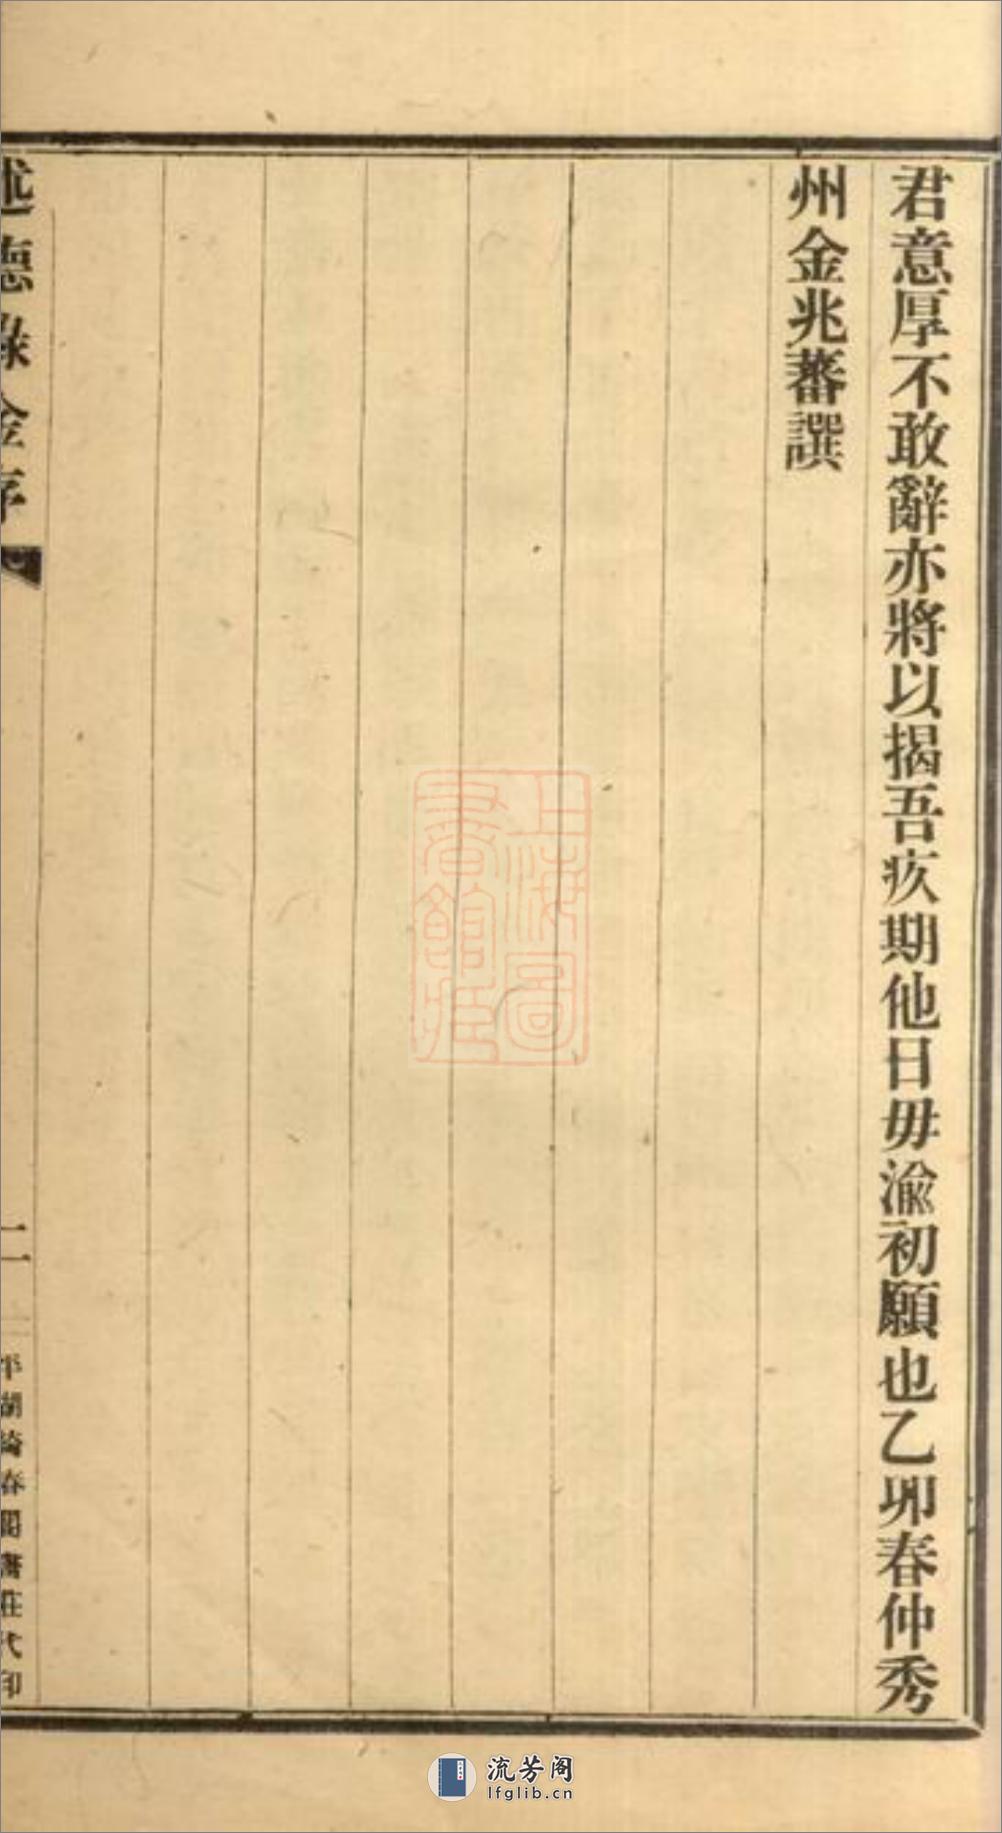 君意厚不敢辭亦將以揭吾疚期他日毋渝初願也乙卯春仲秀
州金兆蕃譔
述德錄金序
二
平湖綺春閣書莊代印
上海圖
書館藏
流芳阁
lfglib.cn